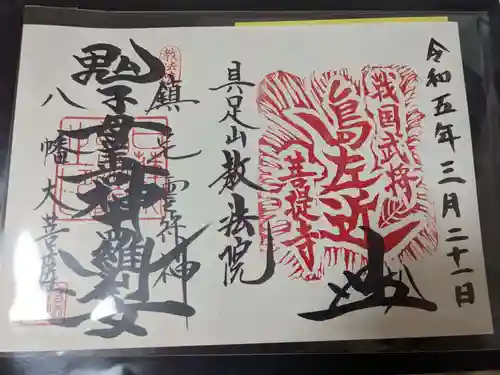 令和五年三月二十一日
戦国武将
島左近
菩提寺
具足山教法院
鎮宅霊符神
鬼子母神
羅刹女
八幡大菩薩